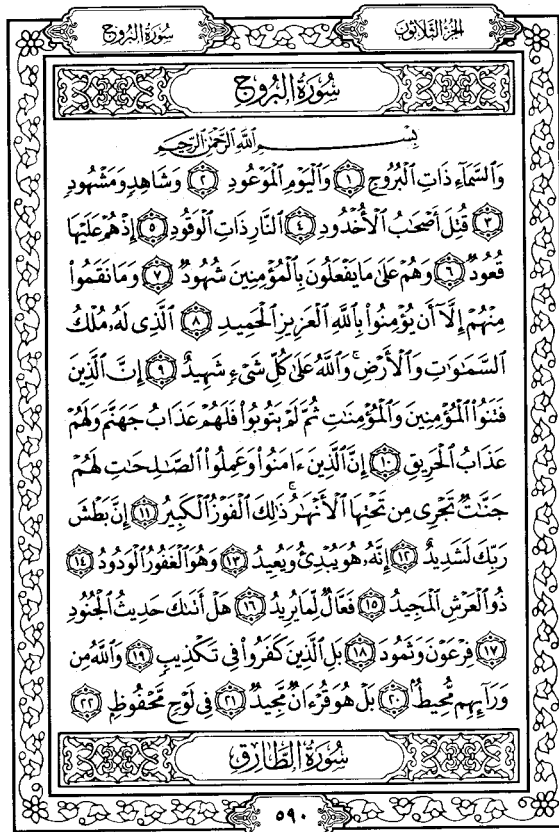 سُورَةُ البُرُوجِ
الجُزءُ الثَّلَاثُونَ
سُورَةُ البُرُوجِ
بِسْمِ اللَّهِ الرَّحْمَٰنِ الرَّحِيمِ
وَالسَّمَاءِ ذَاتِ الْبُرُوجِ ١ وَالْيَوْمِ الْمَوْعُودِ ٢ وَشَاهِدٍ وَمَشْهُودٍ
٣ قُتِلَ أَصْحَٰبُ الْأُخْدُودِ ٤ النَّارِ ذَاتِ الْوَقُودِ ٥ إِذْ هُمْ عَلَيْهَا
قُعُودٌ ٦ وَهُمْ عَلَىٰ مَا يَفْعَلُونَ بِالْمُؤْمِنِينَ شُهُودٌ ٧ وَمَا نَقَمُوا
مِنْهُمْ إِلَّا أَن يُؤْمِنُوا بِاللَّهِ الْعَزِيزِ الْحَمِيدِ ٨ الَّذِي لَهُۥ مُلْكُ
السَّمَٰوَٰتِ وَالْأَرْضِ ۚ وَاللَّهُ عَلَىٰ كُلِّ شَيْءٍ شَهِيدٌ ٩ إِنَّ الَّذِينَ
فَتَنُوا الْمُؤْمِنِينَ وَالْمُؤْمِنَٰتِ ثُمَّ لَمْ يَتُوبُوا فَلَهُمْ عَذَابُ جَهَنَّمَ وَلَهُمْ
عَذَابُ الْحَرِيقِ ١٠ إِنَّ الَّذِينَ ءَامَنُوا وَعَمِلُوا الصَّٰلِحَٰتِ لَهُمْ
جَنَّٰتٌ تَجْرِي مِن تَحْتِهَا الْأَنْهَٰرُ ۚ ذَٰلِكَ الْفَوْزُ الْكَبِيرُ ١١ إِنَّ بَطْشَ
رَبِّكَ لَشَدِيدٌ ١٢ إِنَّهُۥ هُوَ يُبْدِئُ وَيُعِيدُ ١٣ وَهُوَ الْغَفُورُ الْوَدُودُ ١٤
ذُو الْعَرْشِ الْمَجِيدُ ١٥ فَعَّالٌ لِّمَا يُرِيدُ ١٦ هَلْ أَتَىٰكَ حَدِيثُ الْجُنُودِ
١٧ فِرْعَوْنَ وَثَمُودَ ١٨ بَلِ الَّذِينَ كَفَرُوا فِي تَكْذِيبٍ ١٩ وَاللَّهُ مِن
وَرَائِهِم مُّحِيطٌ ٢٠ بَلْ هُوَ قُرْءَانٌ مَّجِيدٌ ٢١ فِي لَوْحٍ مَّحْفُوظٍ ٢٢
سُورَةُ الطَّارِقِ
٥٩٠